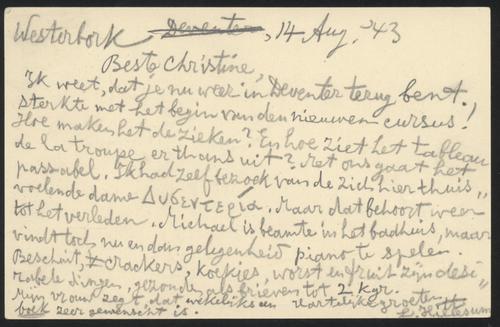 Westerbork Deventer, 14 Aug. '43
Beste Christine,
Ik weet, dat je nu weer in Deventer terug bent.
Sterkte met het begin van den nieuwen cursus!
Hoe maken het de zieken? En hoe ziet het tableau
de la troupe er thans uit? Met ons gaat het
passabel. Ik had zelf bezoek van de zich hier thuis
voelende dame Δυσεντερία. Maar dat behoort weer
tot het verleden. Michael is beambte in het badhuis, maar
vindt toch nu en dan gelegenheid piano te spelen.
Beschuit, crackers, koekjes, worst en fruit zijn desi"
rabele dingen, gezonden als brieven tot 2 kgr.
Mijn vrouw zegt, dat Hartelijke groeten
boek zeer gewenscht is. L. Hillesum